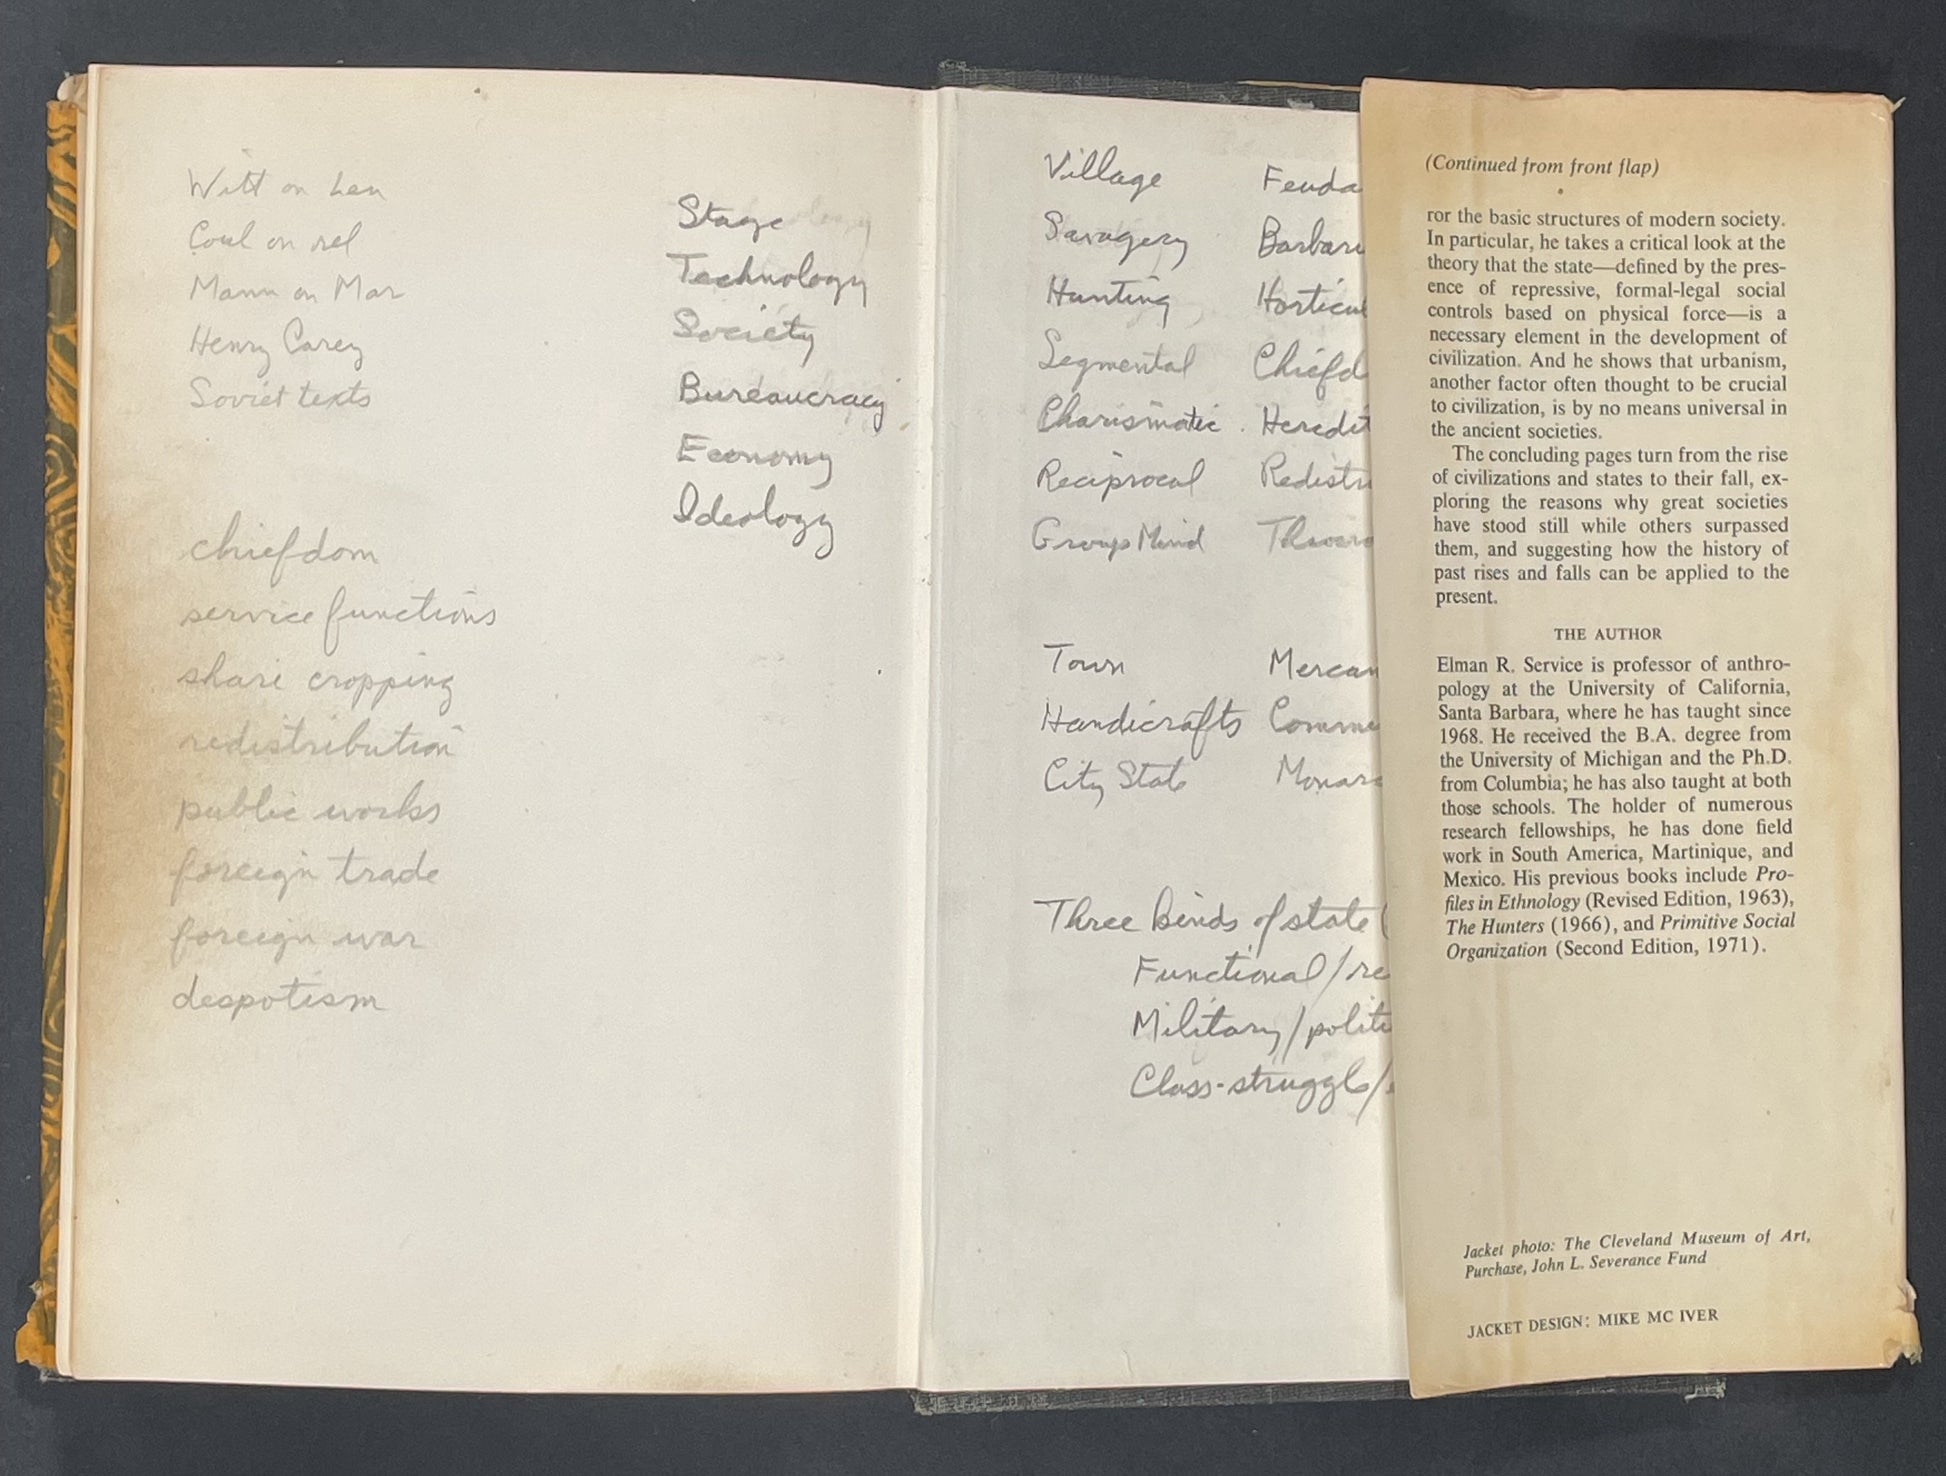 Witt on Len
Coul on rel
Mann on Mar
Henry Carey
Soviet texts
chiefdom
service functions
share cropping
redistribution
public works
foreign trade
foreign war
despotism
Stage
Technology
Society
Bureaucracy
Economy
Ideology
Village Feuda
Savagery Barbari
Hunting Horticul
Segmental Chiefd
Charismatic Heredit
Reciprocal Redistri
Group Mind
Town Mercan
Handicrafts Comme
City State Monar
Three kinds of state (
Functional/re
Military/politi
Class-struggle/
(Continued from front flap)
ror the basic structures of modern society.
In particular, he takes a critical look at the
theory that the state—defined by the pres-
ence of repressive, formal-legal social
controls based on physical force—is a
necessary element in the development of
civilization. And he shows that urbanism,
another factor often thought to be crucial
to civilization, is by no means universal in
the ancient societies.
The concluding pages turn from the rise
of civilizations and states to their fall, ex-
ploring the reasons why great societies
have stood still while others surpassed
them, and suggesting how the history of
past rises and falls can be applied to the
present.
THE AUTHOR
Elman R. Service is professor of anthro-
pology at the University of California,
Santa Barbara, where he has taught since
1968. He received the B.A. degree from
the University of Michigan and the Ph.D.
from Columbia; he has also taught at both
those schools. The holder of numerous
research fellowships, he has done field
work in South America, Martinique, and
Mexico. His previous books include Pro-
files in Ethnology (Revised Edition, 1963),
The Hunters (1966), and Primitive Social
Organization (Second Edition, 1971).
Jacket photo: The Cleveland Museum of Art,
Purchase, John L. Severance Fund
JACKET DESIGN: MIKE MC IVER